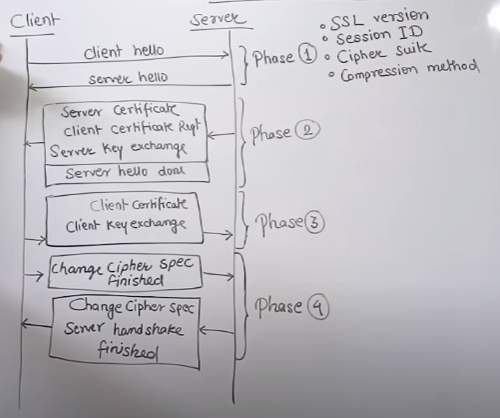 Client
Server
client hello
server hello
Phase 1
• SSL version
• Session ID
• Cipher suite
• Compression method
Server Certificate
Client Certificate Rqt
Server Key exchange
Server hello done
Phase 2
Client Certificate
Client Key exchange
Phase 3
Change Cipher Spec
finished
Change Cipher Spec
Server handshake
finished
Phase 4